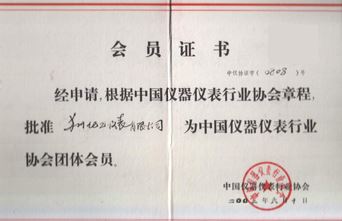 会员证书
中仪协证字( 0808 )号
经申请,根据中国仪器仪表行业协会章程,
批准 仪表有限公司 为中国仪器仪表行业
协会团体会员。
中国仪器仪表行业协会
六月十日